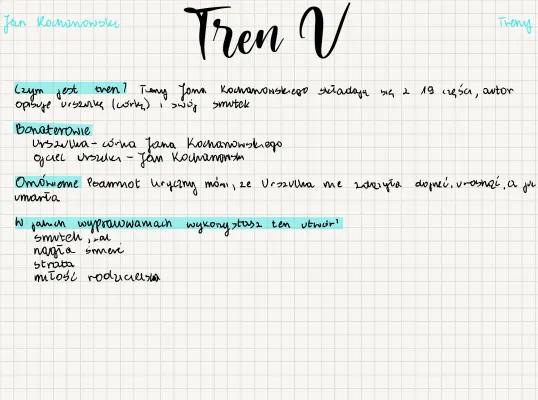 Jan Kochanowski
Tren V
Treny
Czym jest tren? Treny Jana Kochanowskiego składają się z 19 części, autor
opisuje urszulkę (córkę) i swój smutek
Bohaterowie
Urszulka - córka Jana Kochanowskiego
ojciec urszulki - Jan Kochanowski
Omówienie Podmiot liryczny mówi, że Urszulka nie zdążyła dojrzeć, urosnąć, a już
umarła
W jakich wypracowaniach wykorzystasz ten utwór?
smutek, żal
nagła śmierć
strata
miłość rodzicielska